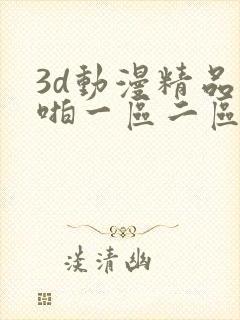 3d動漫精品
啪一區二區
淡清幽